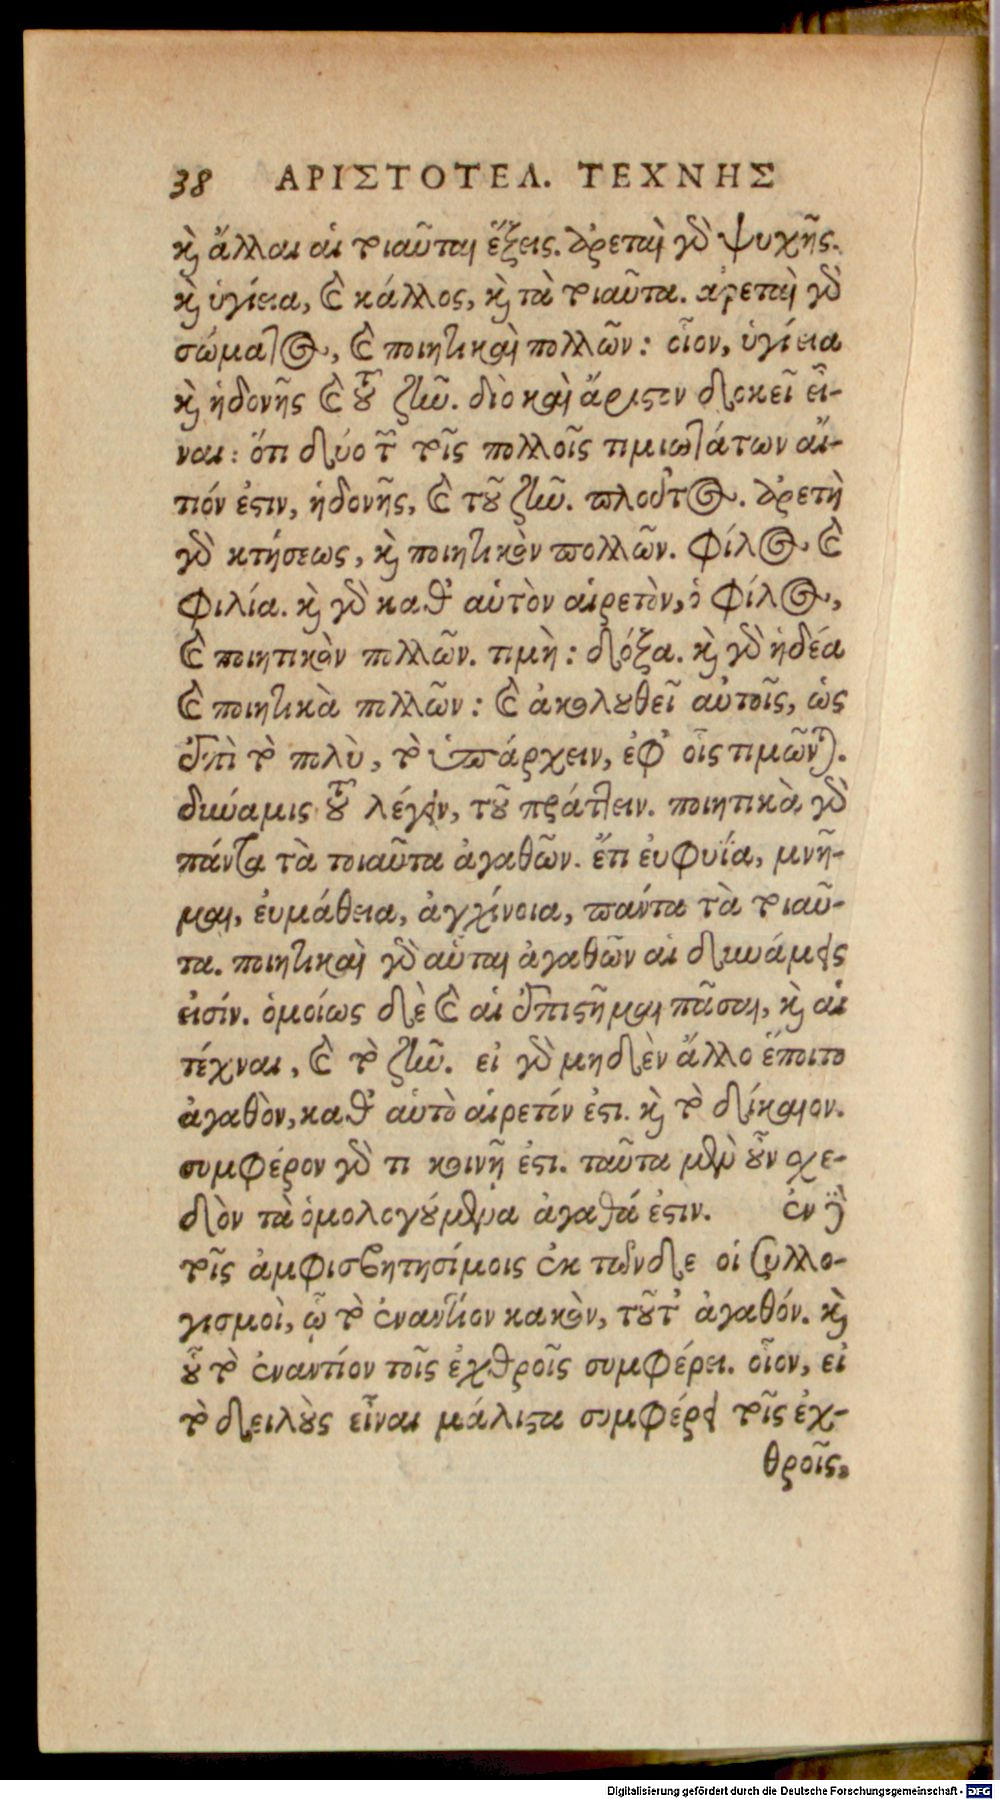 38 ΑΡΙΣΤΟΤΕΛ. ΤΕΧΝΗΣ
καὶ ἄλλαι αἱ τοιαῦται ἕξεις. ἀρεταὶ γὸ ψυχῆς.
καὶ ὑγίεια, καὶ κάλλος, καὶ τὰ τοιαῦτα. ἀρεταὶ γὸ
σώματος, καὶ ποιητικαὶ πολλῶν: οἷον, ὑγίεια
καὶ ἡδονῆς καὶ τοῦ ζῆν. διὸ καὶ ἄριστον δοκεῖ εἶ-
ναι: ὅτι δύο τῶν τοῖς πολλοῖς τιμιωτάτων αἴ-
τιόν ἐστιν, ἡδονῆς, καὶ τοῦ ζῆν. πλοῦτος. ἀρετὴ
γὸ κτήσεως, καὶ ποιητικὸν πολλῶν. φίλος καὶ
φιλία. καὶ γὸ καθ' αὑτὸν αἱρετὸν, ὁ φίλος,
καὶ ποιητικὸν πολλῶν. τιμὴ: δόξα. καὶ γὸ ἡδέα
καὶ ποιητικὰ πολλῶν: καὶ ἀκολουθεῖ αὐτοῖς, ὡς
ἐπὶ τὸ πολὺ, τὸ ὑπάρχειν, ἐφ' οἷς τιμῶνται.
δύναμις τοῦ λέγειν, τοῦ πράττειν. ποιητικὰ γὸ
πάντα τὰ τοιαῦτα ἀγαθῶν. ἔτι εὐφυΐα, μνῆ-
μαι, εὐμάθεια, ἀγχίνοια, πάντα τὰ τοιαῦ-
τα. ποιητικαὶ γὸ αὗται ἀγαθῶν αἱ δυνάμεις
εἰσίν. ὁμοίως δὲ καὶ αἱ ἐπιστῆμαι πᾶσαι, καὶ αἱ
τέχναι, καὶ τὸ ζῆν. εἰ γὸ μηδὲν ἄλλο ἕποιτο
ἀγαθὸν, καθ' αὑτὸ αἱρετόν ἐστι. καὶ τὸ δίκαιον.
συμφέρον γὸ τι κοινῇ ἐστι. ταῦτα μὲν οὖν σχε-
δὸν τὰ ὁμολογούμενα ἀγαθά ἐστιν. ἐν δὲ
τοῖς ἀμφισβητησίμοις ἐκ τῶνδε οἱ συλλο-
γισμοὶ, ᾧ τὸ ἐναντίον κακὸν, τοῦτ' ἀγαθόν. καὶ
οὗ τὸ ἐναντίον τοῖς ἐχθροῖς συμφέρει. οἷον, εἰ
τὸ δειλοὺς εἶναι μάλιστα συμφέρει τοῖς ἐχ-
θροῖς.
Digitalisierung gefördert durch die Deutsche Forschungsgemeinschaft - DFG